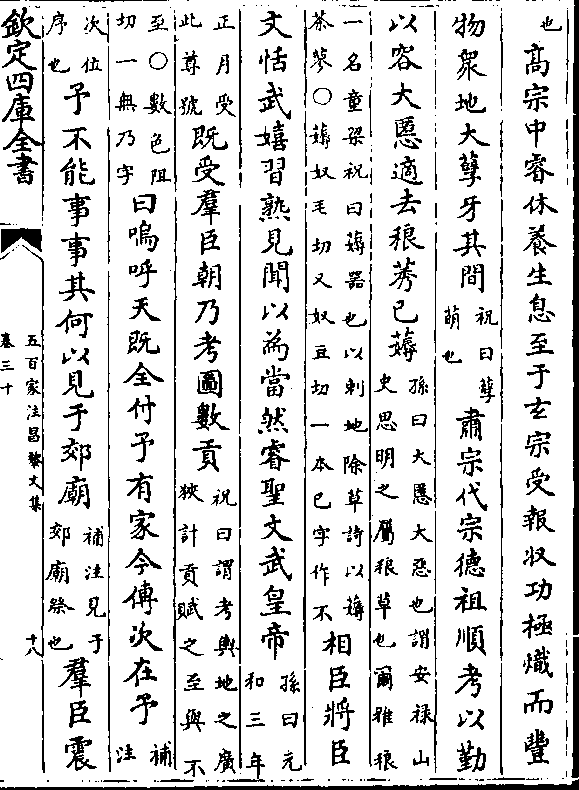 也高宗中睿休養生息至于玄宗受報收功極熾而豐
物衆地大孽牙其間祝曰孽萌也肅宗代宗德祖順考以勤
以容大慝適去稂莠已薅孫曰大慝大惡也謂安禄山史思明之屬稂草也爾雅稂
一名童梁祝曰薅器也以剌地除草詩以薅荼蓼○薅奴毛切又奴豆切一本已字作不相臣將臣
文恬武嬉習熟見聞以為當然睿聖文武皇帝孫曰元和三年
正月受此尊號既受羣臣朝乃考圖數貢祝曰謂考輿地之廣狹計貢賦之至與不
至○數色阻切一無乃字曰嗚呼天既全付予有家今傳次在予補注
次位序也予不能事事其何以見于郊廟補注見于郊廟祭也羣臣震
欽定四庫全書
五百家注昌黎文集
卷三十
十八